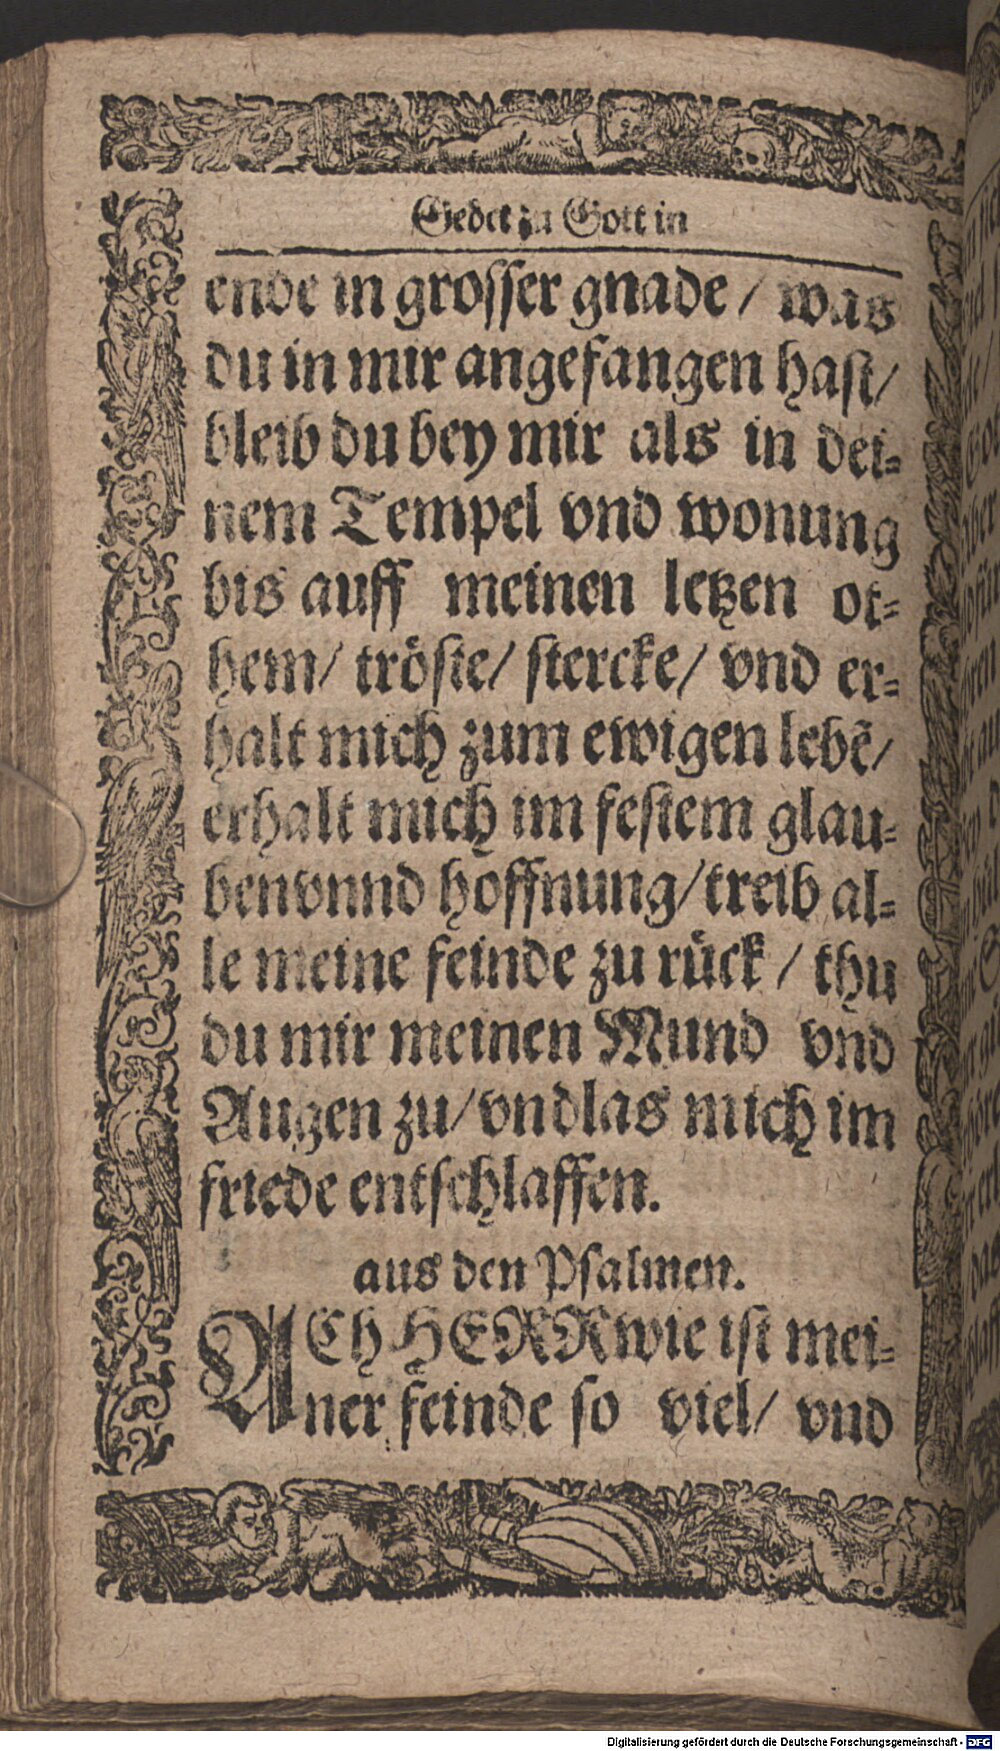 Gebet zu Gott in
ende in grosser gnade / was
du in mir angefangen hast /
bleib du bey mir als in dei-
nem Tempel vnd wonung
bis auff meinen letzen ot-
hem / tröste / stercke / vnd er-
halt mich zum ewigen lebẽ /
erhalt mich im festem glau-
ben vnnd hoffnung / treib al-
le meine feinde zu rück / thu
du mir meinen Mund vnd
Augen zu / vnd las mich im
friede entschlaffen.
aus den Psalmen.
ACh HERR wie ist mei-
ner feinde so viel / vnd
Digitalisierung gefördert durch die Deutsche Forschungsgemeinschaft - DFG